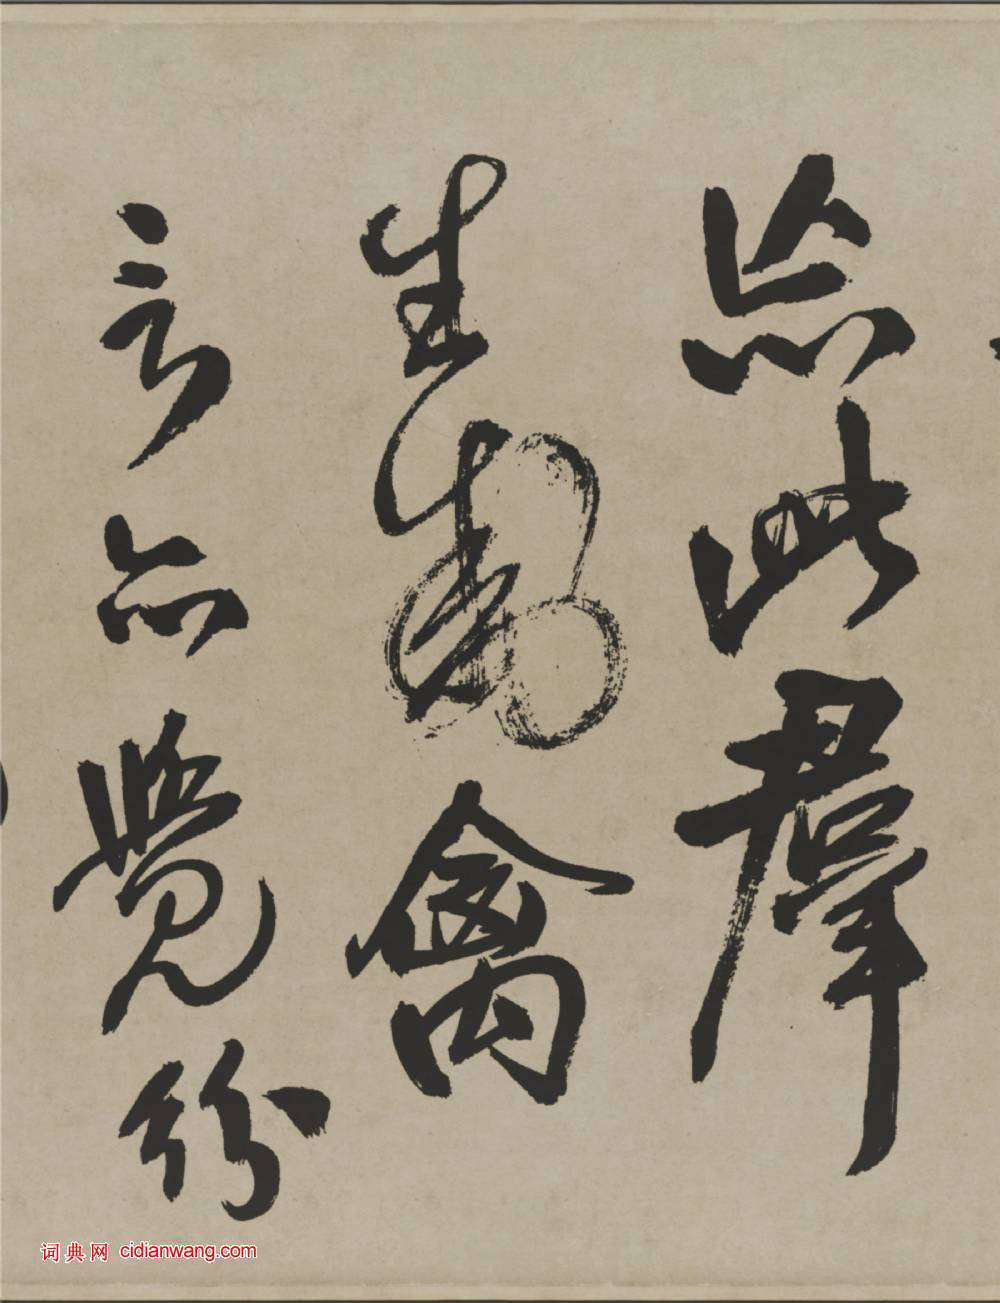 此羣
生動禽
言亦覺紛
词典网 cidianwang.com